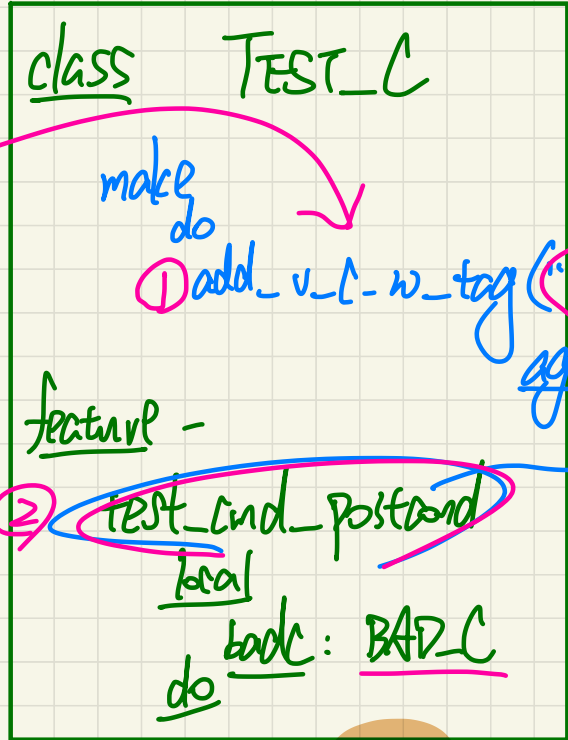 class TEST_C
make
do
① add_v_c_w_tag ("
ag
feature -
② test_cmd_postcond
local
badc : BAD_C
do